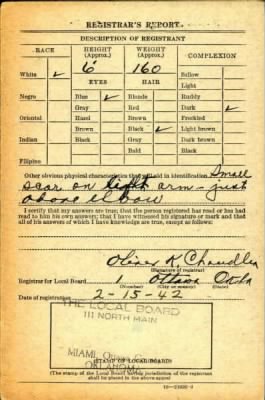 REGISTRAR'S REPORT
DESCRIPTION OF REGISTRANT
RACE HEIGHT (Approx.) WEIGHT (Approx.) COMPLEXION
White ✓ 6' 160 Sallow
EYES HAIR Light
Negro Blue ✓ Blonde Ruddy
Gray Red Dark ✓
Oriental Hazel Brown Freckled
Brown Black ✓ Light brown
Indian Black Gray Dark brown
Bald Black
Filipino
Other obvious physical characteristics that will aid in identification Small
scar on right arm - just
above elbow
I certify that my answers are true; that the person registered has read or has had
read to him his own answers; that I have witnessed his signature or mark and that
all of his answers of which I have knowledge are true, except as follows:
Oliver K. Chandler
(Signature of registrar)
Registrar for Local Board 1 Ottawa Okla
(Number) (City or county) (State)
Date of registration 2-15-42
THE LOCAL BOARD
111 NORTH MAIN
MIAMI,
OKLAHOMA
(STAMP OF LOCAL BOARD)
(The stamp of the Local Board having jurisdiction of the registrant
shall be placed in the above space.)